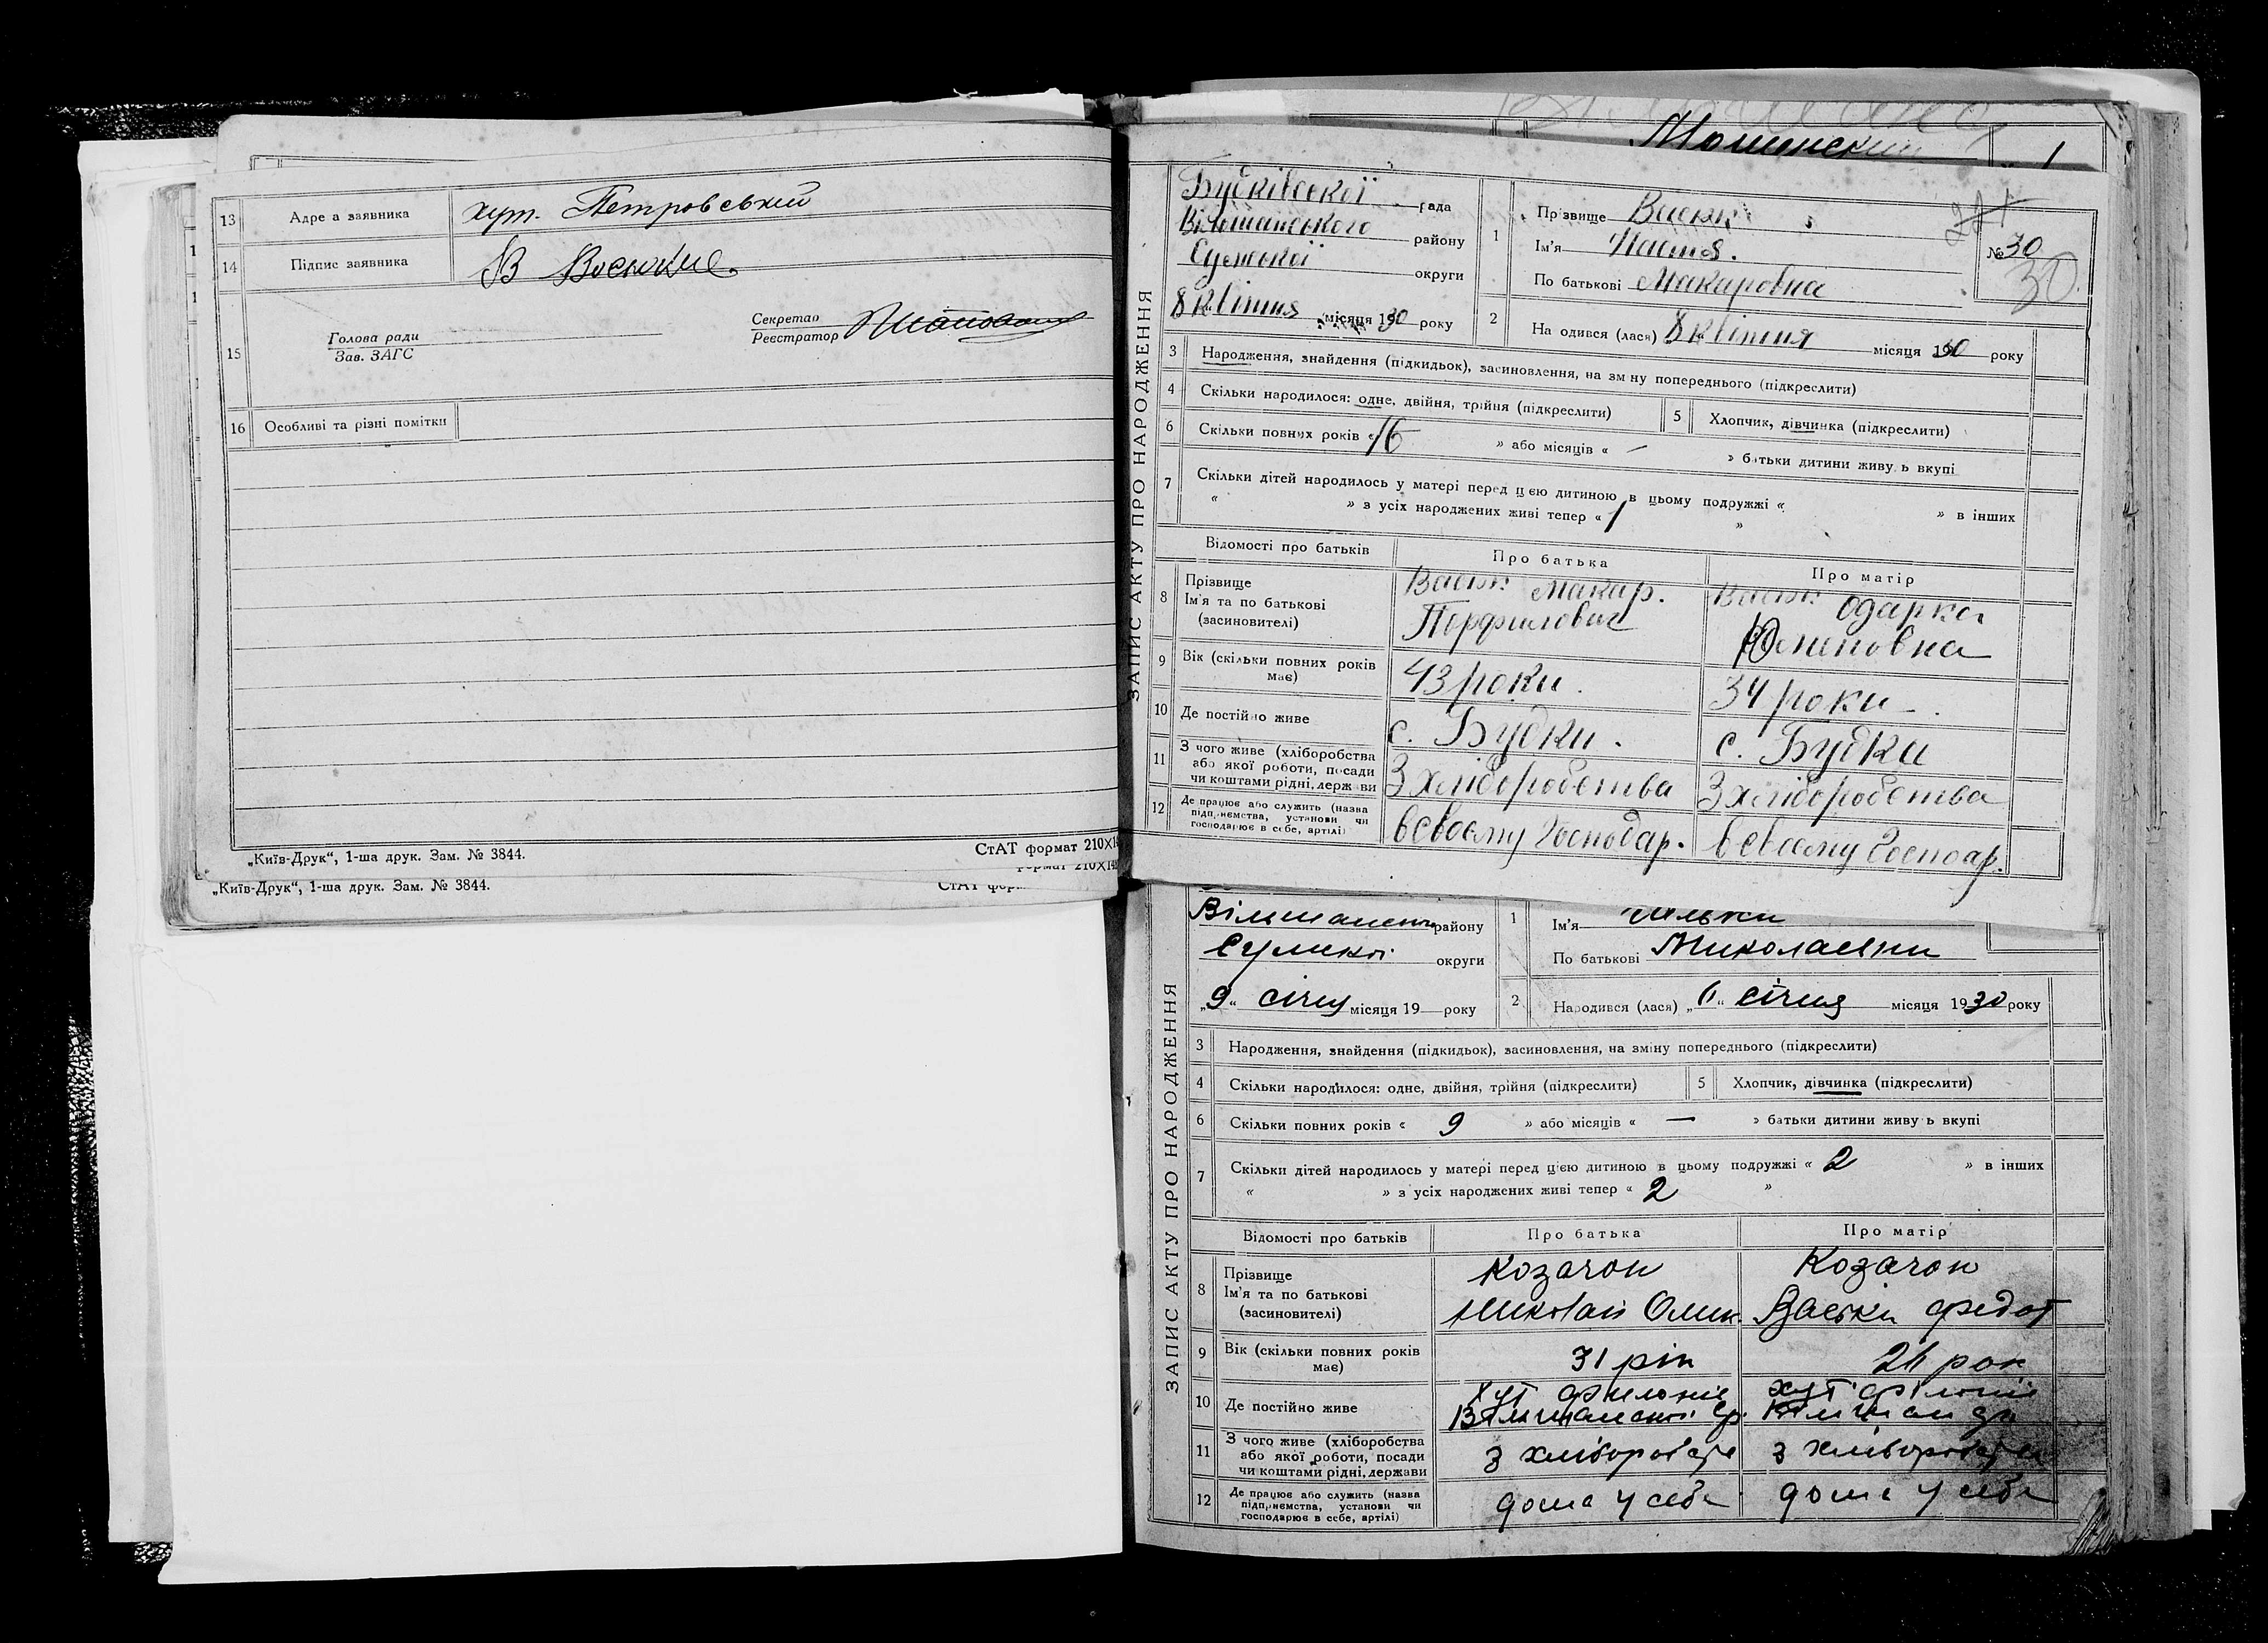 13 Адре а заявника хут. Петровський
14 Підпис заявника В
15 Голова ради
Зав. ЗАГС
Секретар
Реєстратор
16 Особливі та різні помітки
„Київ-Друк“, 1-ша друк. Зам. № 3844.
СтАТ формат 210×14
формат 210×14
„Київ-Друк“, 1-ша друк. Зам. № 3844.
СтАТ фор
1
ЗАПИС АКТУ ПРО НАРОДЖЕННЯ
Будківської рада
Вільшанського району
Сумської округи
8 квітня місяця 1930 року
1 Прізвище
Ім'я Настя.
По батькові Макаровна
№ 30
30
2 На одився (лася) 8 квітня місяця 1930 року
3 Народження, знайдення (підкидьок), засиновлення, на зм ну попереднього (підкреслити)
4 Скільки народилося: одне, двійня, трійня (підкреслити)
5 Хлопчик, дівчинка (підкреслити)
6 Скільки повних років « 16 » або місяців « — » батьки дитини живу ь вкупі
7 Скільки дітей народилось у матері перед цією дитиною в цьому подружжі « » в інших
« » з усіх народжених живі тепер « 1 »
Відомості про батьків Про батька Про матір
8 Прізвище
Ім'я та по батькові
(засновителі)
Макар.
Порфилович
Одарка
9 Вік (скільки повних років має) 43 роки. 34 роки.
10 Де постійно живе с. Будки. с. Будки
11 З чого живе (хліборобства
або якої роботи, посади
чи коштами рідні, держ ви
З хліборобства З хліборобства
12 Де працює або служить (назва
підприємства, установи чи
господарює в себе, артілі)
в своєму господар. в своєму госпоар.
ЗАПИС АКТУ ПРО НАРОДЖЕННЯ
району
округи
„9“ січня місяця 19 року
1 Ім'я
По батькові Миколаєвни
2 Народився (лася) „6“ січня місяця 1930 року
3 Народження, знайдення (підкидьок), засиновлення, на зміну попереднього (підкреслити)
4 Скільки народилося: одне, двійня, трійня (підкреслити)
5 Хлопчик, дівчинка (підкреслити)
6 Скільки повних років « 9 » або місяців « — » батьки дитини живу ь вкупі
7 Скільки дітей народилось у матері перед цією дитиною в цьому подружжі « 2 » в інших
« » з усіх народжених живі тепер « 2 »
Відомості про батьків Про батька Про матір
8 Прізвище
Ім'я та по батькові
(засновителі)
Козачок Козачок
Николай Федот
9 Вік (скільки повних років має) 31 рік
10 Де постійно живе
хут хут
11 З чого живе (хліборобства
або якої роботи, посади
чи коштами рідні, держави
12 Де працює або служить (назва
підприємства, установи чи
господарює в себе, артілі)
дома у себе дома у себе